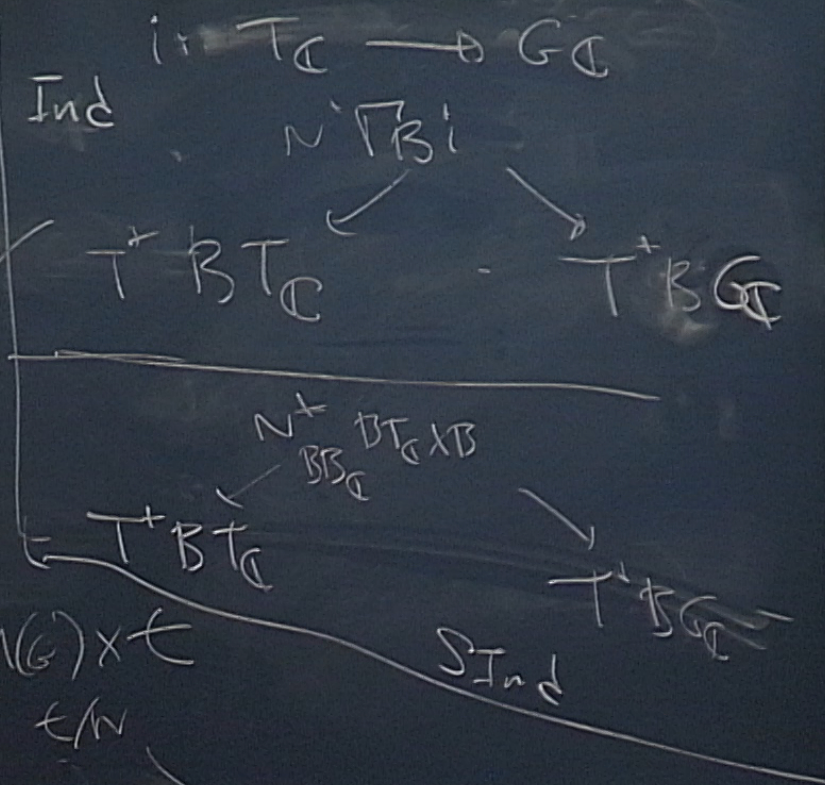 i: T_ℂ → G_ℂ
Ind
N* Γ_{Bi}
T* BT_ℂ T* BG_ℂ
N*_{BB_ℂ} BT_ℂ × B
T* BT_ℂ
T* BG_ℂ
(G) × t
SInd
t/W